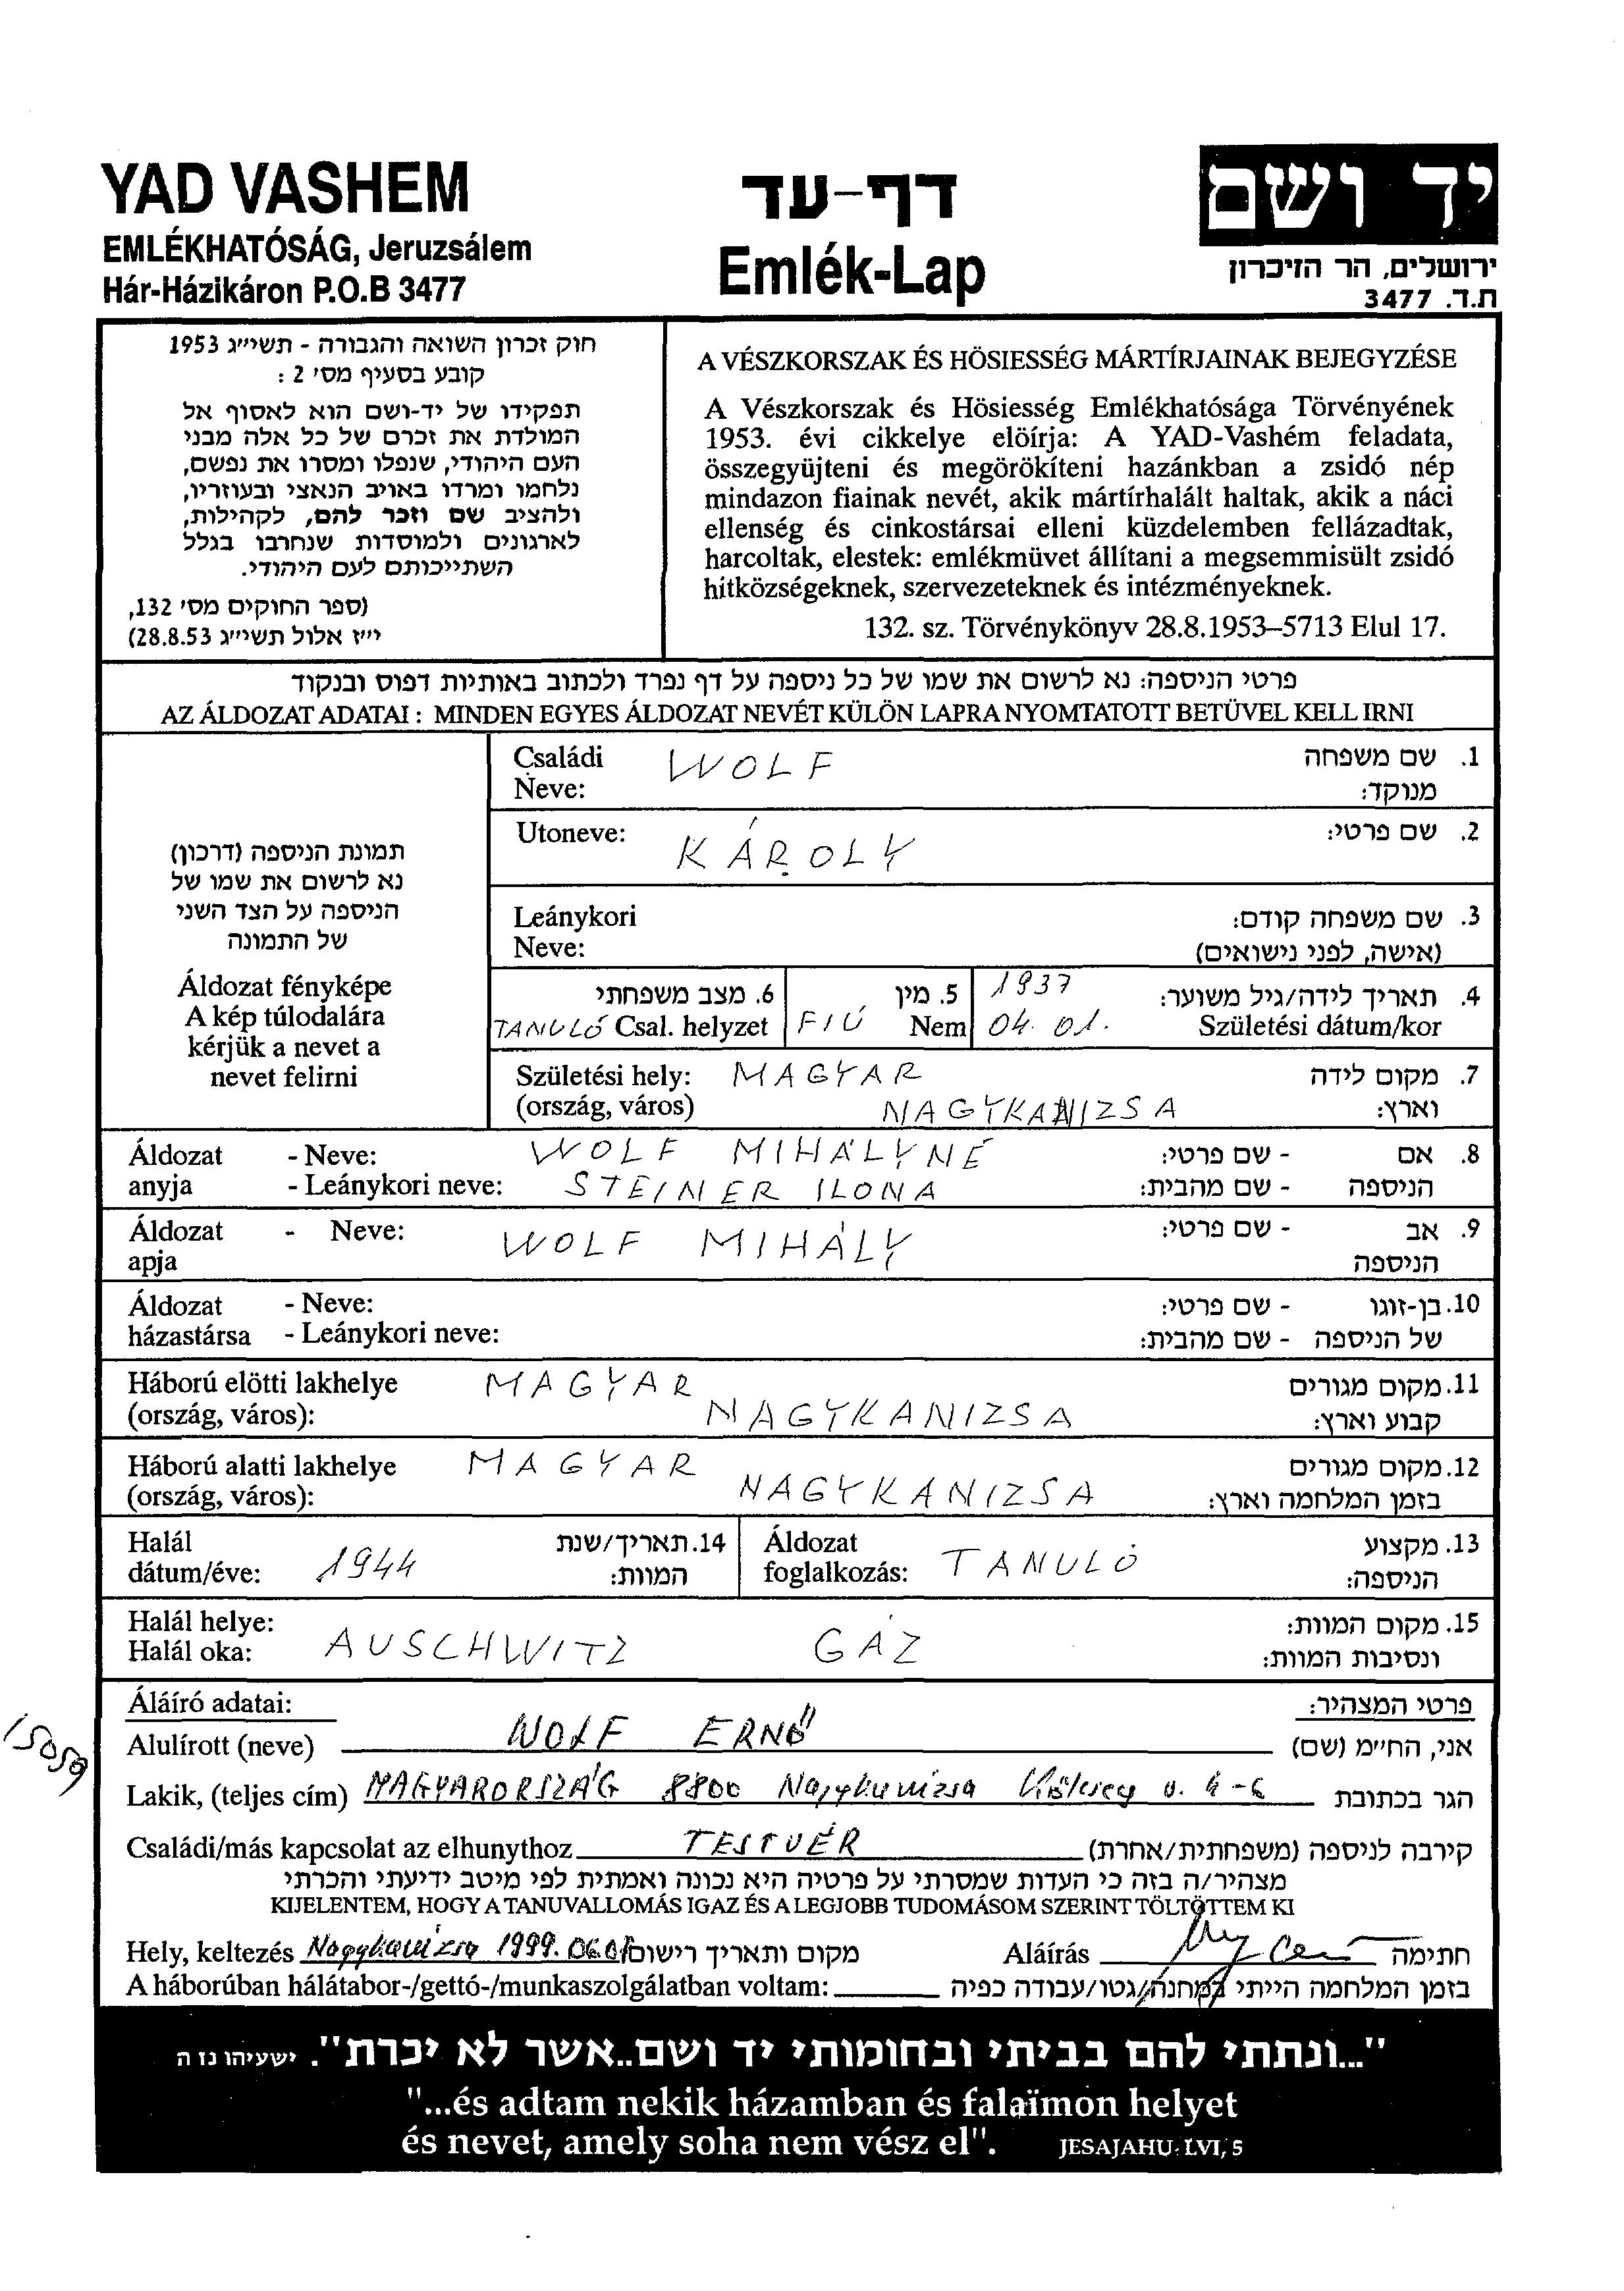 YAD VASHEM
EMLÉKHATÓSÁG, Jeruzsálem
Hár-Házikáron P.O.B 3477
דף-עד
Emlék-Lap
יד ושם
ירושלים, הר הזיכרון
ת.ד. 3477
חוק זכרון השואה והגבורה - תשי״ג 1953
קובע בסעיף מס' 2 :
תפקידו של יד-ושם הוא לאסוף אל
המולדת את זכרם של כל אלה מבני
העם היהודי, שנפלו ומסרו את נפשם,
נלחמו ומרדו באויב הנאצי ובעוזריו,
ולהציב שם וזכר להם, לקהילות,
לארגונים ולמוסדות שנחרבו בגלל
השתייכותם לעם היהודי.
(ספר החוקים מס' 132,
י״ז אלול תשי״ג 28.8.53)
A VÉSZKORSZAK ÉS HÖSIESSÉG MÁRTÍRJAINAK BEJEGYZÉSE
A Vészkorszak és Hösiesség Emlékhatósága Törvényének
1953. évi cikkelye elöírja: A YAD-Vashém feladata,
összegyüjteni és megörökíteni hazánkban a zsidó nép
mindazon fiainak nevét, akik mártírhalált haltak, akik a náci
ellenség és cinkostársai elleni küzdelemben fellázadtak,
harcoltak, elestek: emlékmüvet állítani a megsemmisült zsidó
hitközségeknek, szervezeteknek és intézményeknek.
132. sz. Törvénykönyv 28.8.1953–5713 Elul 17.
פרטי הניספה: נא לרשום את שמו של כל ניספה על דף נפרד ולכתוב באותיות דפוס ובנקוד
AZ ÁLDOZAT ADATAI : MINDEN EGYES ÁLDOZAT NEVÉT KÜLÖN LAPRA NYOMTATOTT BETÜVEL KELL IRNI
תמונת הניספה (דרכון)
נא לרשום את שמו של
הניספה על הצד השני
של התמונה
Áldozat fényképe
A kép túlodalára
kérjük a nevet a
nevet felirni
Családi WOLF 1. שם משפחה
Neve: מנוקד:
Utoneve: KÁROLY 2. שם פרטי:
Leánykori 3. שם משפחה קודם:
Neve: (אישה, לפני נישואים)
6. מצב משפחתי 5. מין 1937 4. תאריך לידה/גיל משוער:
TANULÓ Csal. helyzet FIÚ Nem 04. 01. Születési dátum/kor
Születési hely: MAGYAR 7. מקום לידה
(ország, város) NAGYKANIZSA וארץ:
Áldozat - Neve: WOLF MIHÁLYNÉ 8. אם - שם פרטי:
anyja - Leánykori neve: STEINER ILONA הניספה - שם מהבית:
Áldozat - Neve: WOLF MIHÁLY 9. אב - שם פרטי:
apja הניספה
Áldozat - Neve: 10. בן-זוגו - שם פרטי:
házastársa - Leánykori neve: של הניספה - שם מהבית:
Háború elötti lakhelye MAGYAR 11. מקום מגורים
(ország, város): NAGYKANIZSA קבוע וארץ:
Háború alatti lakhelye MAGYAR 12. מקום מגורים
(ország, város): NAGYKANIZSA בזמן המלחמה וארץ:
Halál 14. תאריך/שנת Áldozat 13. מקצוע
dátum/éve: 1944 המוות: foglalkozás: TANULÓ הניספה:
Halál helye: 15. מקום המוות:
Halál oka: AUSCHWITZ GÁZ ונסיבות המוות:
Áláíró adatai: פרטי המצהיר:
Alulírott (neve) WOLF ERNŐ אני, החי״מ (שם)
Lakik, (teljes cím) MAGYARORSZÁG 8800 Nagykanizsa Kölcsey u. 4-6 הגר בכתובת
15059
Családi/más kapcsolat az elhunythoz TESTVÉR קירבה לניספה (משפחתית/אחרת)
מצהיר/ה בזה כי העדות שמסרתי על פרטיה היא נכונה ואמתית לפי מיטב ידיעתי והכרתי
KIJELENTEM, HOGY A TANUVALLOMÁS IGAZ ÉS A LEGJOBB TUDOMÁSOM SZERINT TÖLTÖTTEM KI
Hely, keltezés Nagykanizsa 1999. 06.01 מקום ותאריך רישום Aláírás חתימה
A háborúban hálátabor-/gettó-/munkaszolgálatban voltam: בזמן המלחמה הייתי במחנה/גטו/עבודה כפיה
"...ונתתי להם בביתי ובחומותי יד ושם..אשר לא יכרת". ישעיהו נז ה
"...és adtam nekik házamban és falaïmon helyet
és nevet, amely soha nem vész el". JESAJAHU: LVI, 5